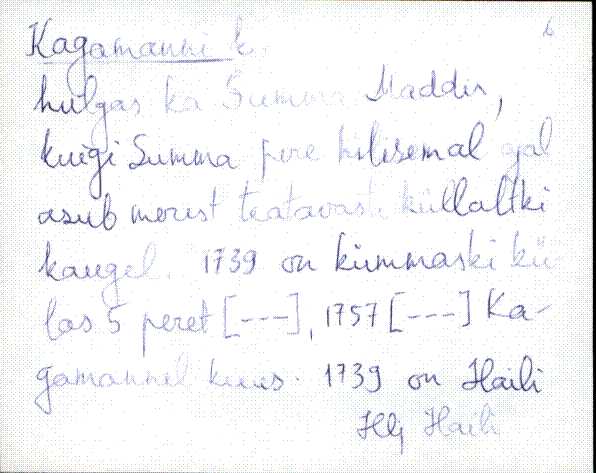 Kagamanni k. 6
hulgas ka Summa Maddis,
kuigi Summa pere hilisemal ajal
asub merest teatavasti küllaltki
kaugel. 1739 on kummaski kü
las 5 peret [---], 1757 [---] Ka-
gamannil kuus. 1739 on Haili
Hlj Haili